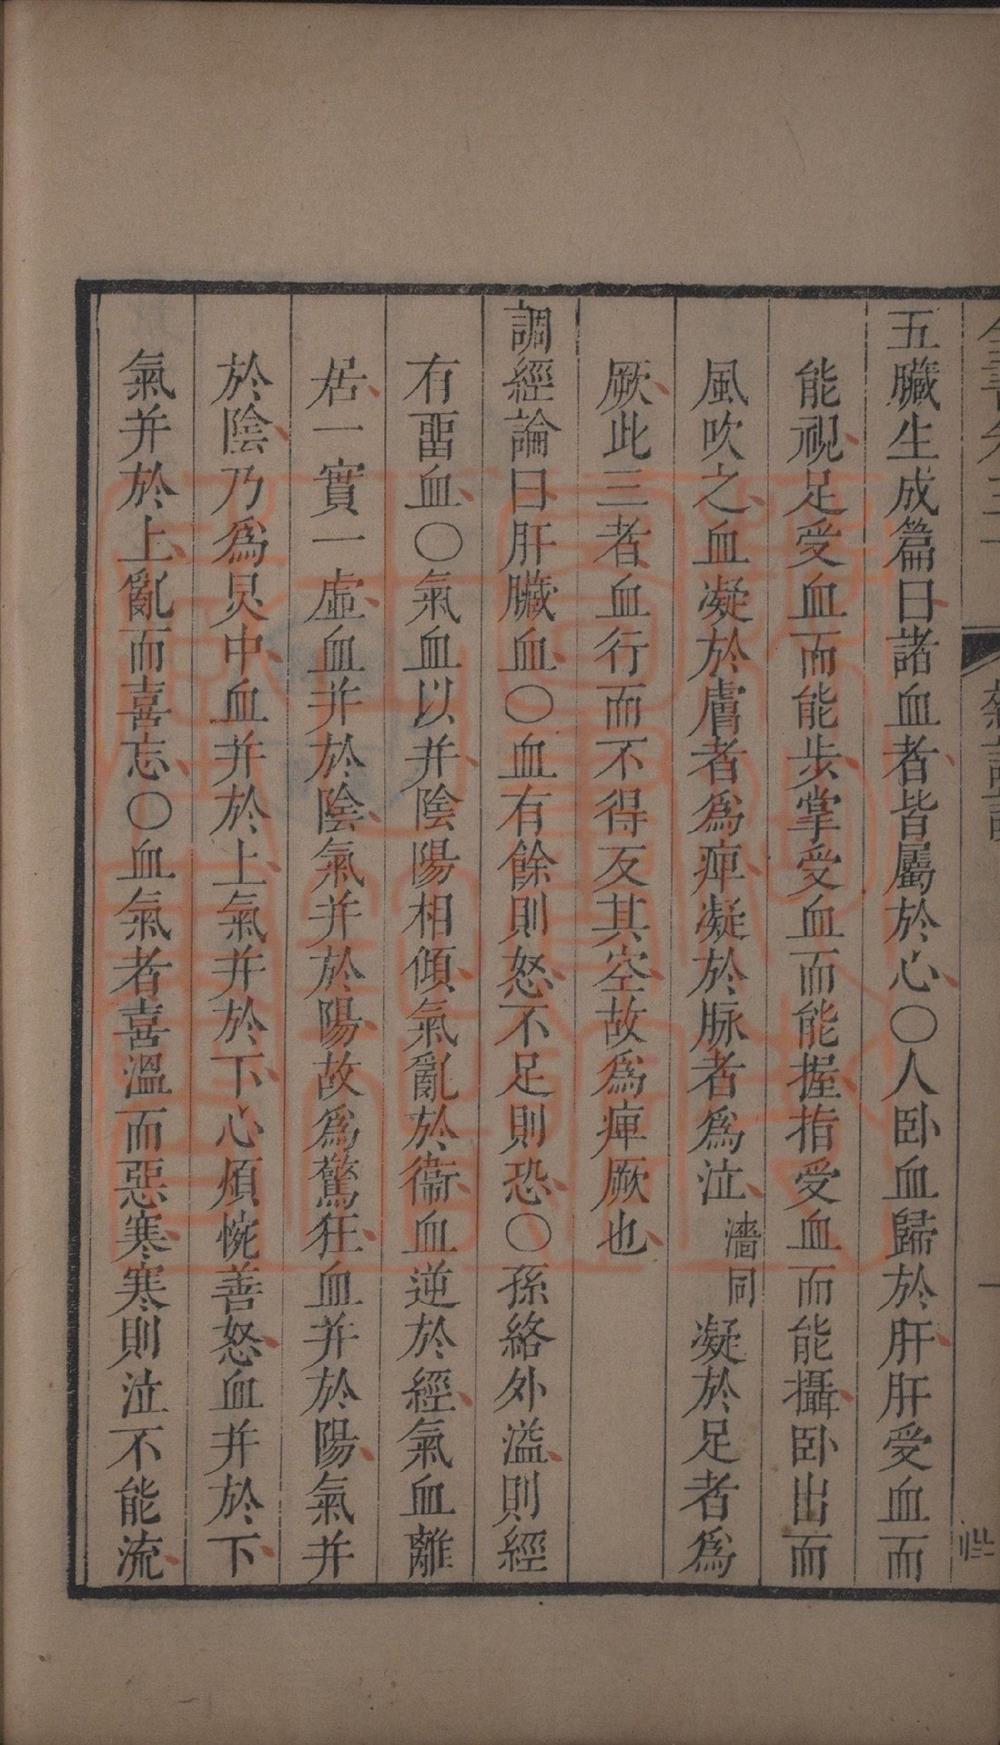 五臟生成篇曰諸血者皆屬於心○人卧血歸於肝肝受血而
能視足受血而能步掌受血而能握指受血而能攝卧出而
風吹之血凝於膚者爲痺凝於脉者爲泣濇同凝於足者爲
厥此三者血行而不得反其空故爲痺厥也
調經論曰肝臟血○血有餘則怒不足則恐○孫絡外溢則經
有畱血○氣血以并陰陽相傾氣亂於衞血逆於經氣血離
居一實一虛血并於陰氣并於陽故爲驚狂血并於陽氣并
於陰乃爲炅中血并於上氣并於下心煩惋善怒血并於下
氣并於上亂而喜忘○血氣者喜溫而惡寒寒則泣不能流